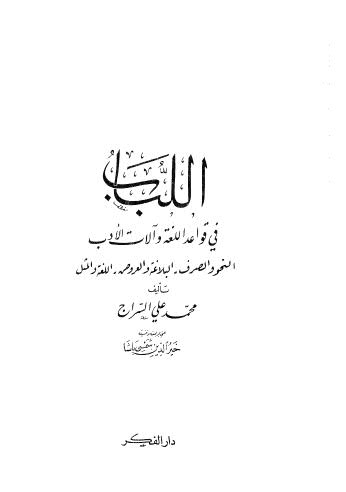 اللباب
في قواعد اللغة وآلات الأدب
النحو والصرف - البلاغة والعروض - اللغة والمثل
تأليف
محمد علي السراج
خير الدين شمسي باشا
دار الفكر